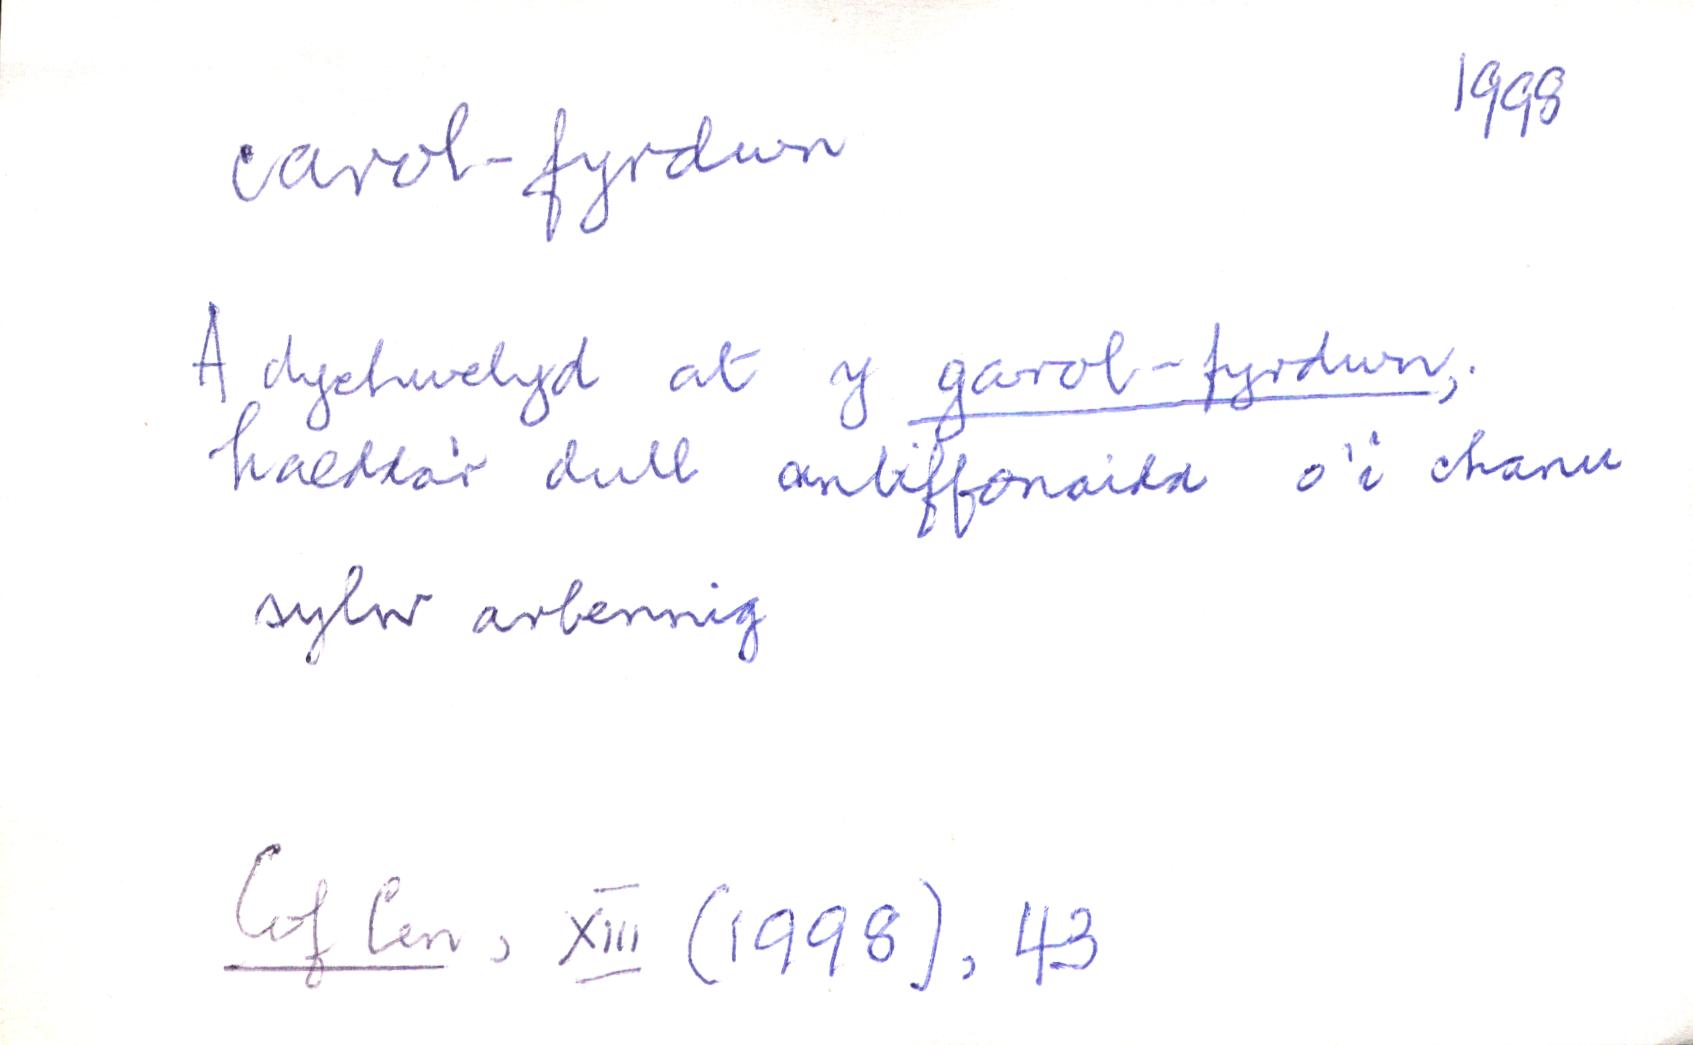 1998
carol-fyrdwn
A dychwelyd at y garol-fyrdwn,
haedda'r dull antiffonaidd o'i chanu
sylw arbennig
Cof Cen, XIII (1998), 43